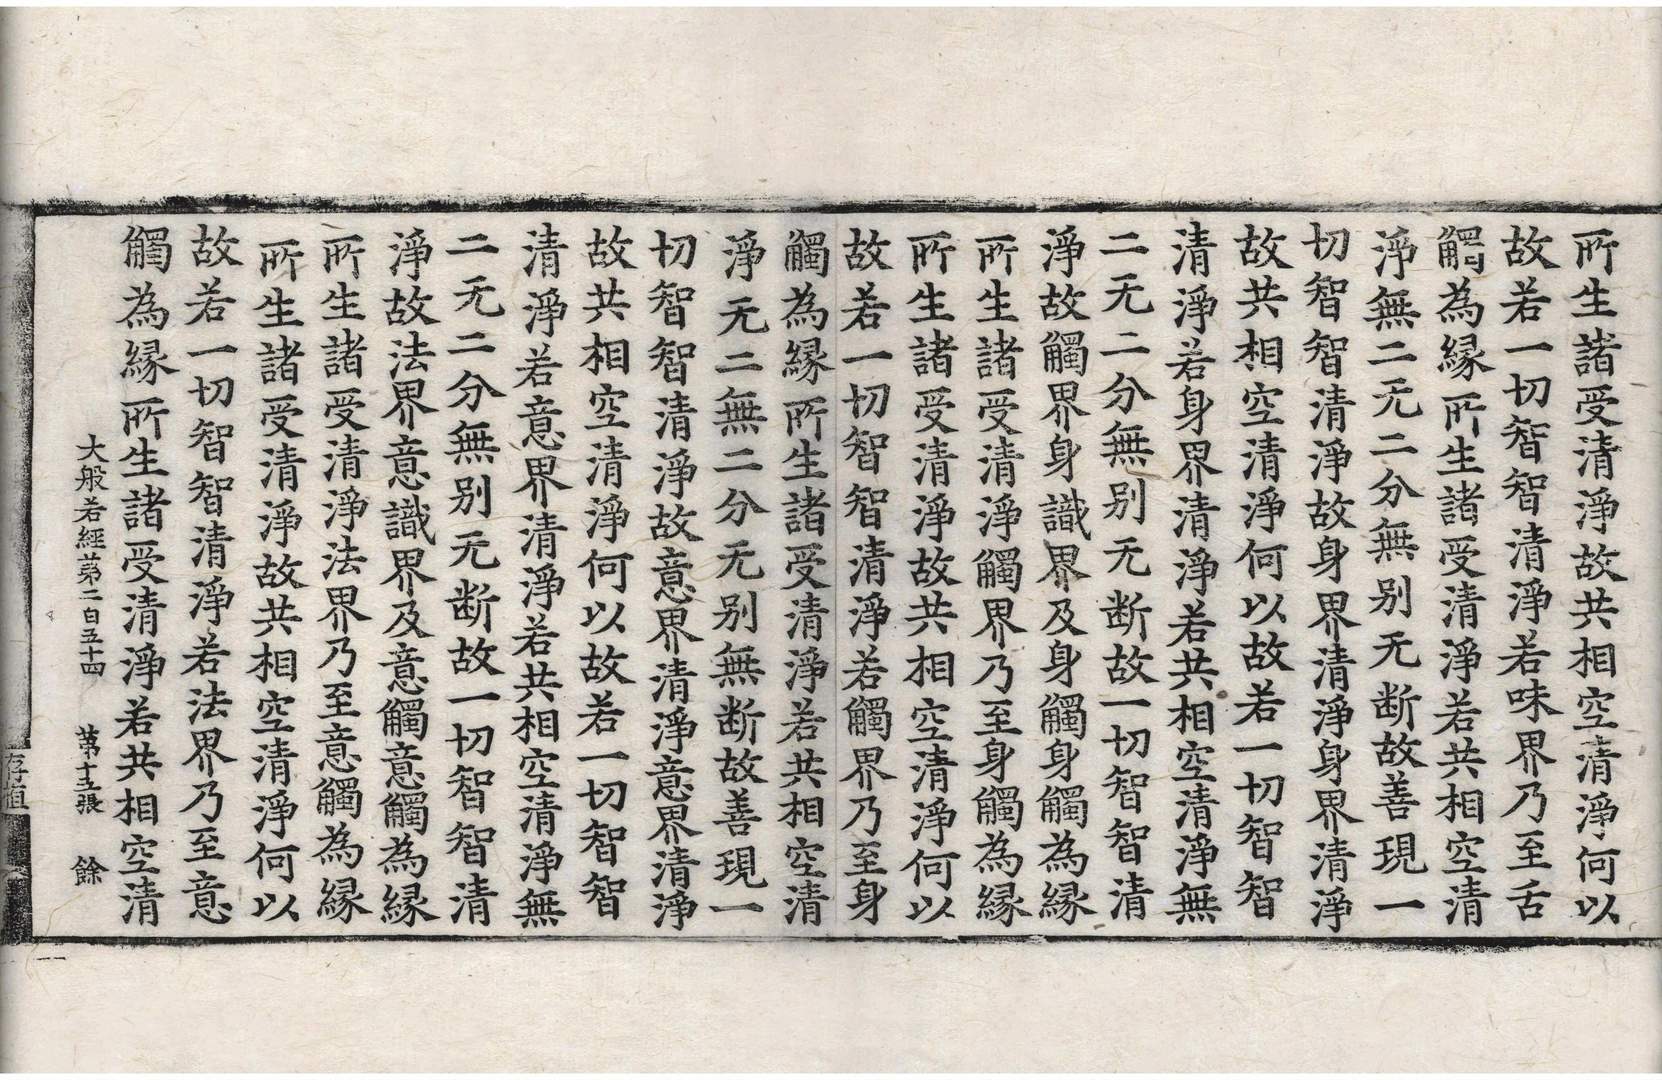 所生諸受清淨故共相空清淨何以
故若一切智智清淨若味界乃至舌
觸為緣所生諸受清淨若共相空清
淨無二无二分無別无断故善現一
切智智清淨故身界清淨身界清淨
故共相空清淨何以故若一切智智
清淨若身界清淨若共相空清淨無
二无二分無別无断故一切智智清
淨故觸界身識界及身觸身觸為緣
所生諸受清淨觸界乃至身觸為緣
所生諸受清淨故共相空清淨何以
故若一切智智清淨若觸界乃至身
觸為緣所生諸受清淨若共相空清
淨无二無二分无別無断故善現一
切智智清淨故意界清淨意界清淨
故共相空清淨何以故若一切智智
清淨若意界清淨若共相空清淨無
二无二分無別无断故一切智智清
淨故法界意識界及意觸意觸為緣
所生諸受清淨法界乃至意觸為緣
所生諸受清淨故共相空清淨何以
故若一切智智清淨若法界乃至意
觸為緣所生諸受清淨若共相空清
大般若經第二百五十四 第十五張 餘
存植